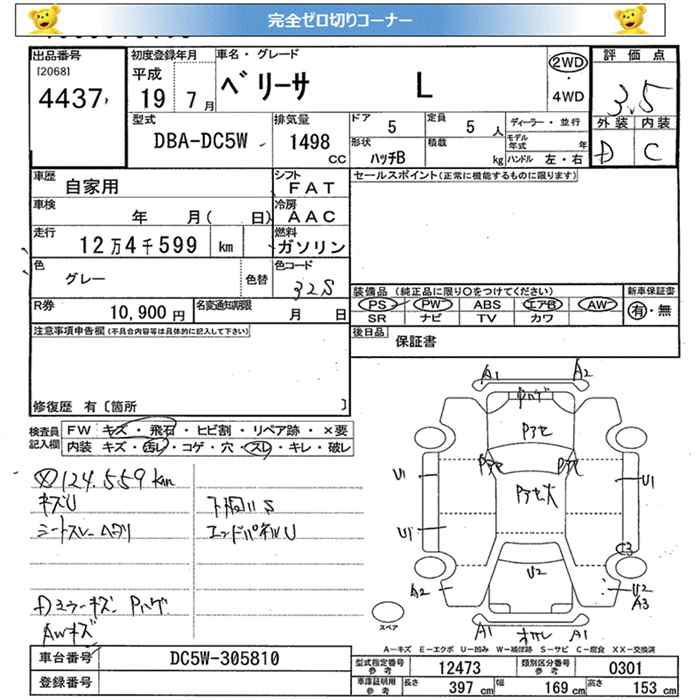 完全ゼロ切りコーナー
出品番号 初度登録年月 車名・グレード 評価点
[2068] 平成 ベリーサ L 2WD 3.5
4437 19年 7月 4WD
外装 内装
D C
型式 DBA-DC5W 排気量 1498 CC ドア 5 定員 5 人 ディーラー・並行
形状 ハッチB 積載 kg モデル年式 年
ハンドル 左・右
車歴 自家用 シフト FAT セールスポイント(正常に機能するものに限ります)
車検 年 月( 日) 冷房 AAC
走行 12万4千599 km 燃料 ガソリン
色 グレー 色替 色コード 32S
装備品(純正品に限り○をつけてください) 新車保証書
PS PW ABS エアB AW 有・無
SR ナビ TV カワ
R券 10,900円 名変通知期限 月 日
後日品 保証書
注意事項申告欄(不具合内容等は具体的に記入して下さい)
修復歴 有〔箇所 〕
検査員記入欄 FW キズ・飛石・ヒビ割・リペア跡・×要
内装 キズ・汚レ・コゲ・穴・スレ・キレ・破レ
124.559km
キズU 下廻りS
シートスレ ヘタリ エンドパネルU
Dミラーキズ Pハゲ
AWキズ
A1 A2
Pハゲ
Pアセ
Pアセ Pアセ
Pアセ大
U1 U1
U1
C3
U2
A2 U2
A3
A1 A1
スペア
A-キズ E-エクボ U-凹み W-補修跡 S-サビ C-腐食 XX-交換済
車台番号 DC5W-305810
登録番号
型式指定番号 参考 12473 類別区分番号 参考 0301
車庫証明用 参考 長さ 397 cm 幅 169 cm 高さ 153 cm